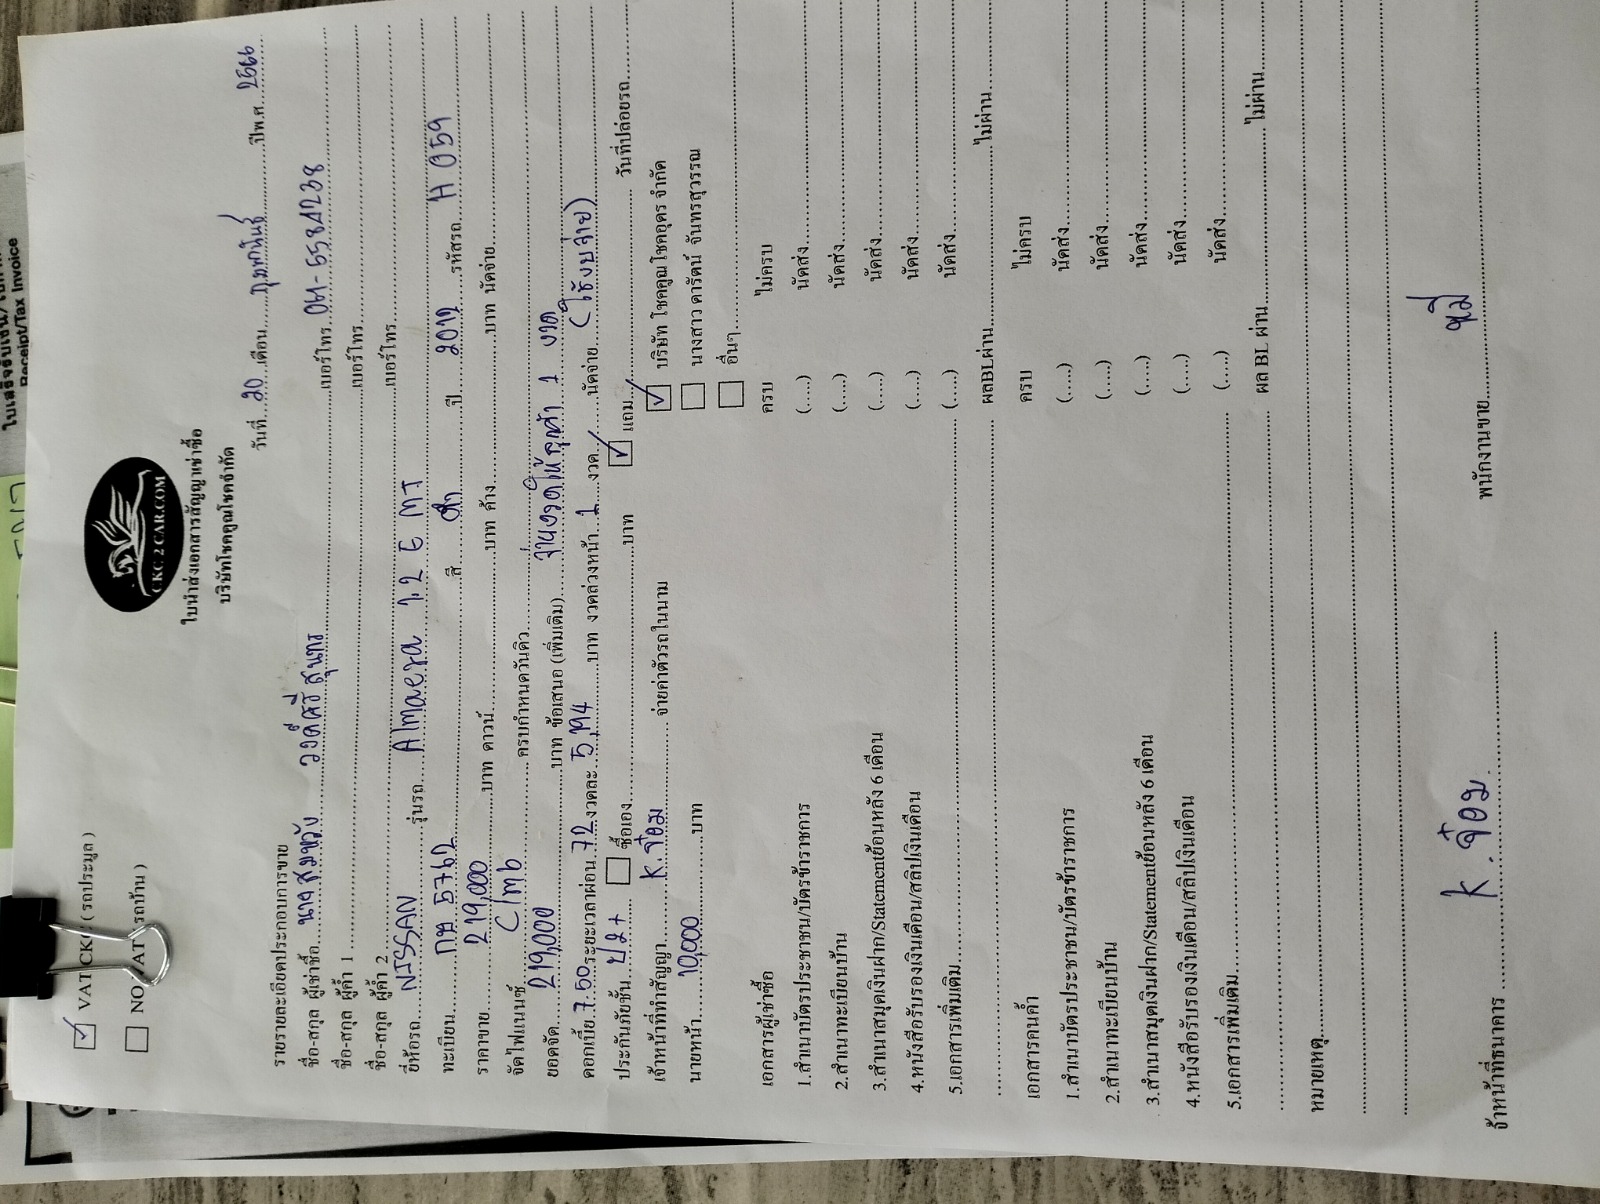 ใบเสร็จรับเงิน/ใบกำ
Receipt/Tax Invoice
VAT CKC ( รถประมูล )
NO VAT รถบ้าน )
CKC 2 CAR.COM
ใบนำส่งเอกสารสัญญาเช่าซื้อ
บริษัทโชคคูณโชคจำกัด
วันที่ 20 เดือน กุมภาพันธ์ ปีพ.ศ. 2566
รายรายละเอียดประกอบการขาย
ชื่อ-สกุล ผู้เช่าซื้อ นายสมหวัง วงค์ศรีสุนทร เบอร์โทร 061-5584238
ชื่อ-สกุล ผู้ค้ำ 1 เบอร์โทร
ชื่อ-สกุล ผู้ค้ำ 2 เบอร์โทร
ยี่ห้อรถ NISSAN รุ่นรถ Almaera 1.2 E MT
ทะเบียน กษ 5762 สี ดำ ปี 2012 รหัสรถ H 059
ราคาขาย 219,000 บาท ดาวน์ บาท ค้าง บาท นัดจ่าย
จัดไฟแนนซ์ Cimb ครบกำหนดวันคิว
ยอดจัด 219,000 บาท ข้อเสนอ (เพิ่มเติม) จ่ายงวดให้ลูกค้า 1 งวด
ดอกเบี้ย 7.50 ระยะเวลาผ่อน 72 งวดละ 5,194 บาท งวดล่วงหน้า 1 งวด นัดจ่าย (ใช้งบจ่าย)
ประกันภัยชั้น ป/2+ ซื้อเอง บาท แถม วันที่ปล่อยรถ
เจ้าหน้าที่ทำสัญญา K. จ๋อม จ่ายค่าตัวรถในนาม บริษัท โชคคูณโชคอุดร จำกัด
นายหน้า 10,000 บาท นางสาว ดารัตน์ จันทรสุวรรณ
อื่นๆ
เอกสารผู้เช่าซื้อ ครบ ไม่ครบ
1.สำเนาบัตรประชาชน/บัตรข้าราชการ (....) นัดส่ง
2.สำเนาทะเบียนบ้าน (....) นัดส่ง
3.สำเนาสมุดเงินฝาก/Statementย้อนหลัง 6 เดือน (....) นัดส่ง
4.หนังสือรับรองเงินเดือน/สลิปเงินเดือน (....) นัดส่ง
5.เอกสารเพิ่มเติม (....) นัดส่ง
ผลBLผ่าน ไม่ผ่าน
เอกสารคนค้ำ ครบ ไม่ครบ
1.สำเนาบัตรประชาชน/บัตรข้าราชการ (....) นัดส่ง
2.สำเนาทะเบียนบ้าน (....) นัดส่ง
3.สำเนาสมุดเงินฝาก/Statementย้อนหลัง 6 เดือน (....) นัดส่ง
4.หนังสือรับรองเงินเดือน/สลิปเงินเดือน (....) นัดส่ง
5.เอกสารเพิ่มเติม (....) นัดส่ง
ผล BL ผ่าน ไม่ผ่าน
หมายเหตุ
จ้าหน้าที่ธนาคาร K. จ๋อม พนักงานขาย